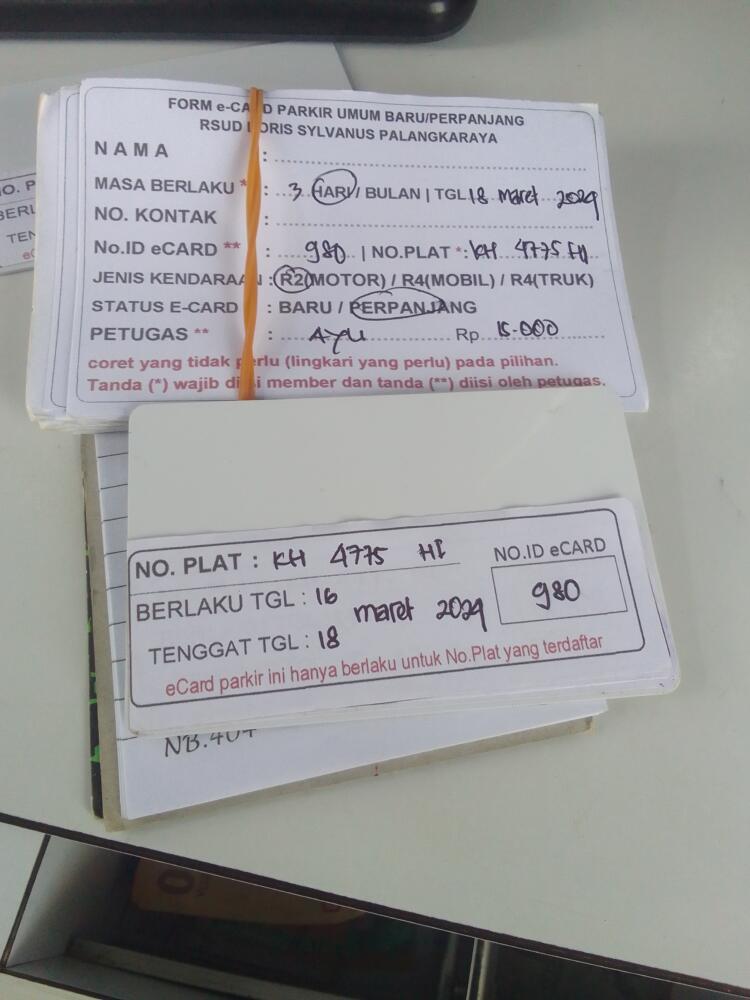 FORM e-CARD PARKIR UMUM BARU/PERPANJANG
RSUD DORIS SYLVANUS PALANGKARAYA
NAMA :
MASA BERLAKU * : 3 HARI / BULAN | TGL 18 maret 2024
NO. KONTAK :
No.ID eCARD ** : 980 | NO.PLAT * : KH 4775 HI
JENIS KENDARAAN : R2(MOTOR) / R4(MOBIL) / R4(TRUK)
STATUS E-CARD : BARU / PERPANJANG
PETUGAS ** : AYU Rp 15.000
coret yang tidak perlu (lingkari yang perlu) pada pilihan.
Tanda (*) wajib diisi member dan tanda (**) diisi oleh petugas.
NO. PLAT : KH 4775 HI
NO.ID eCARD
980
BERLAKU TGL : 16
maret 2024
TENGGAT TGL : 18
eCard parkir ini hanya berlaku untuk No.Plat yang terdaftar